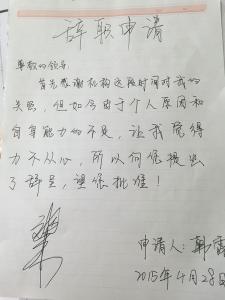 辞职申请
尊敬的领导:
首先感谢机构这段时间对我的
关照,但如今由于个人原因和
自身能力的不足,让我觉得
力不从心,所以向您提出
了辞呈,望您批准!
申请人:韩雷
2015年4月28日